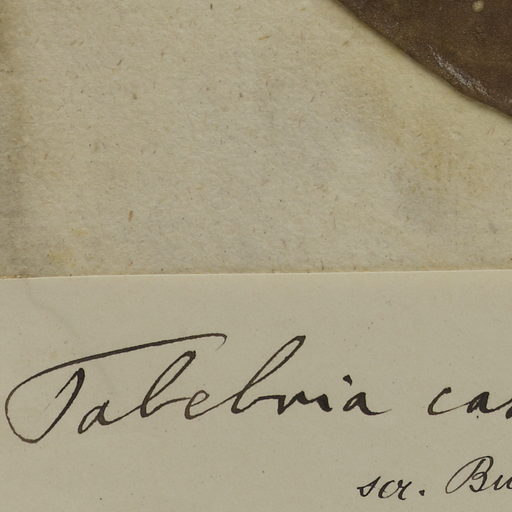 Tabebuia cas
scr. Bu